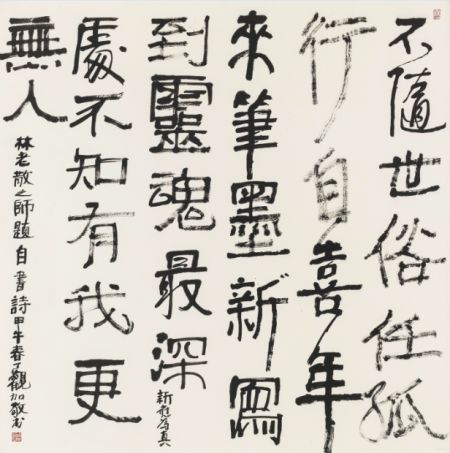 不隨世俗任孤
行自喜年
來筆墨新寫
到靈魂最深
新為真
處不知有我更
無人
林老散之師題自書詩甲午春丁觀加敬書